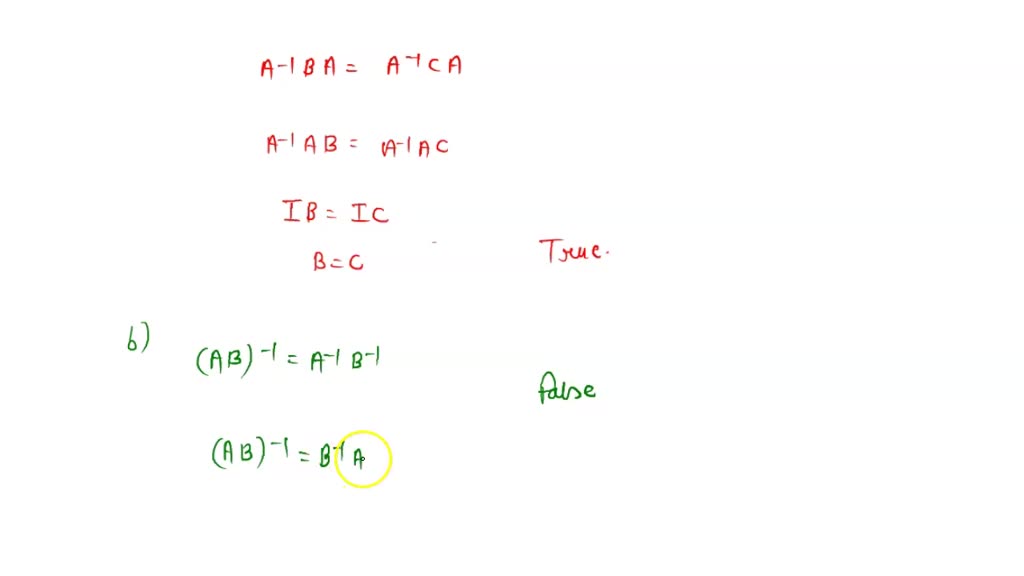 A⁻¹BA = A⁻¹CA
A⁻¹AB = A⁻¹AC
IB = IC
B = C
True.
b)
(AB)⁻¹ = A⁻¹ B⁻¹
False
(AB)⁻¹ = B⁻¹ A